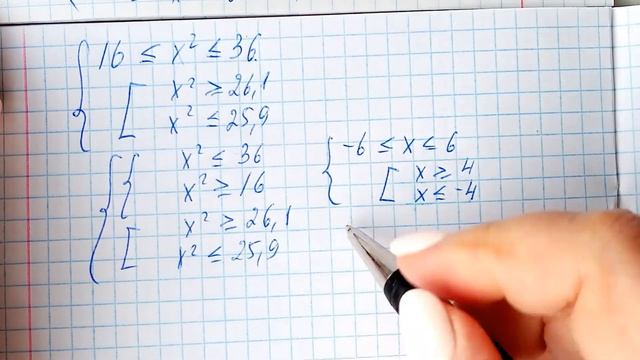 16 ≤ x² ≤ 36
x² ≥ 26,1
x² ≤ 25,9
x² ≤ 36
x² ≥ 16
x² ≥ 26,1
x² ≤ 25,9
-6 ≤ x ≤ 6
x ≥ 4
x ≤ -4